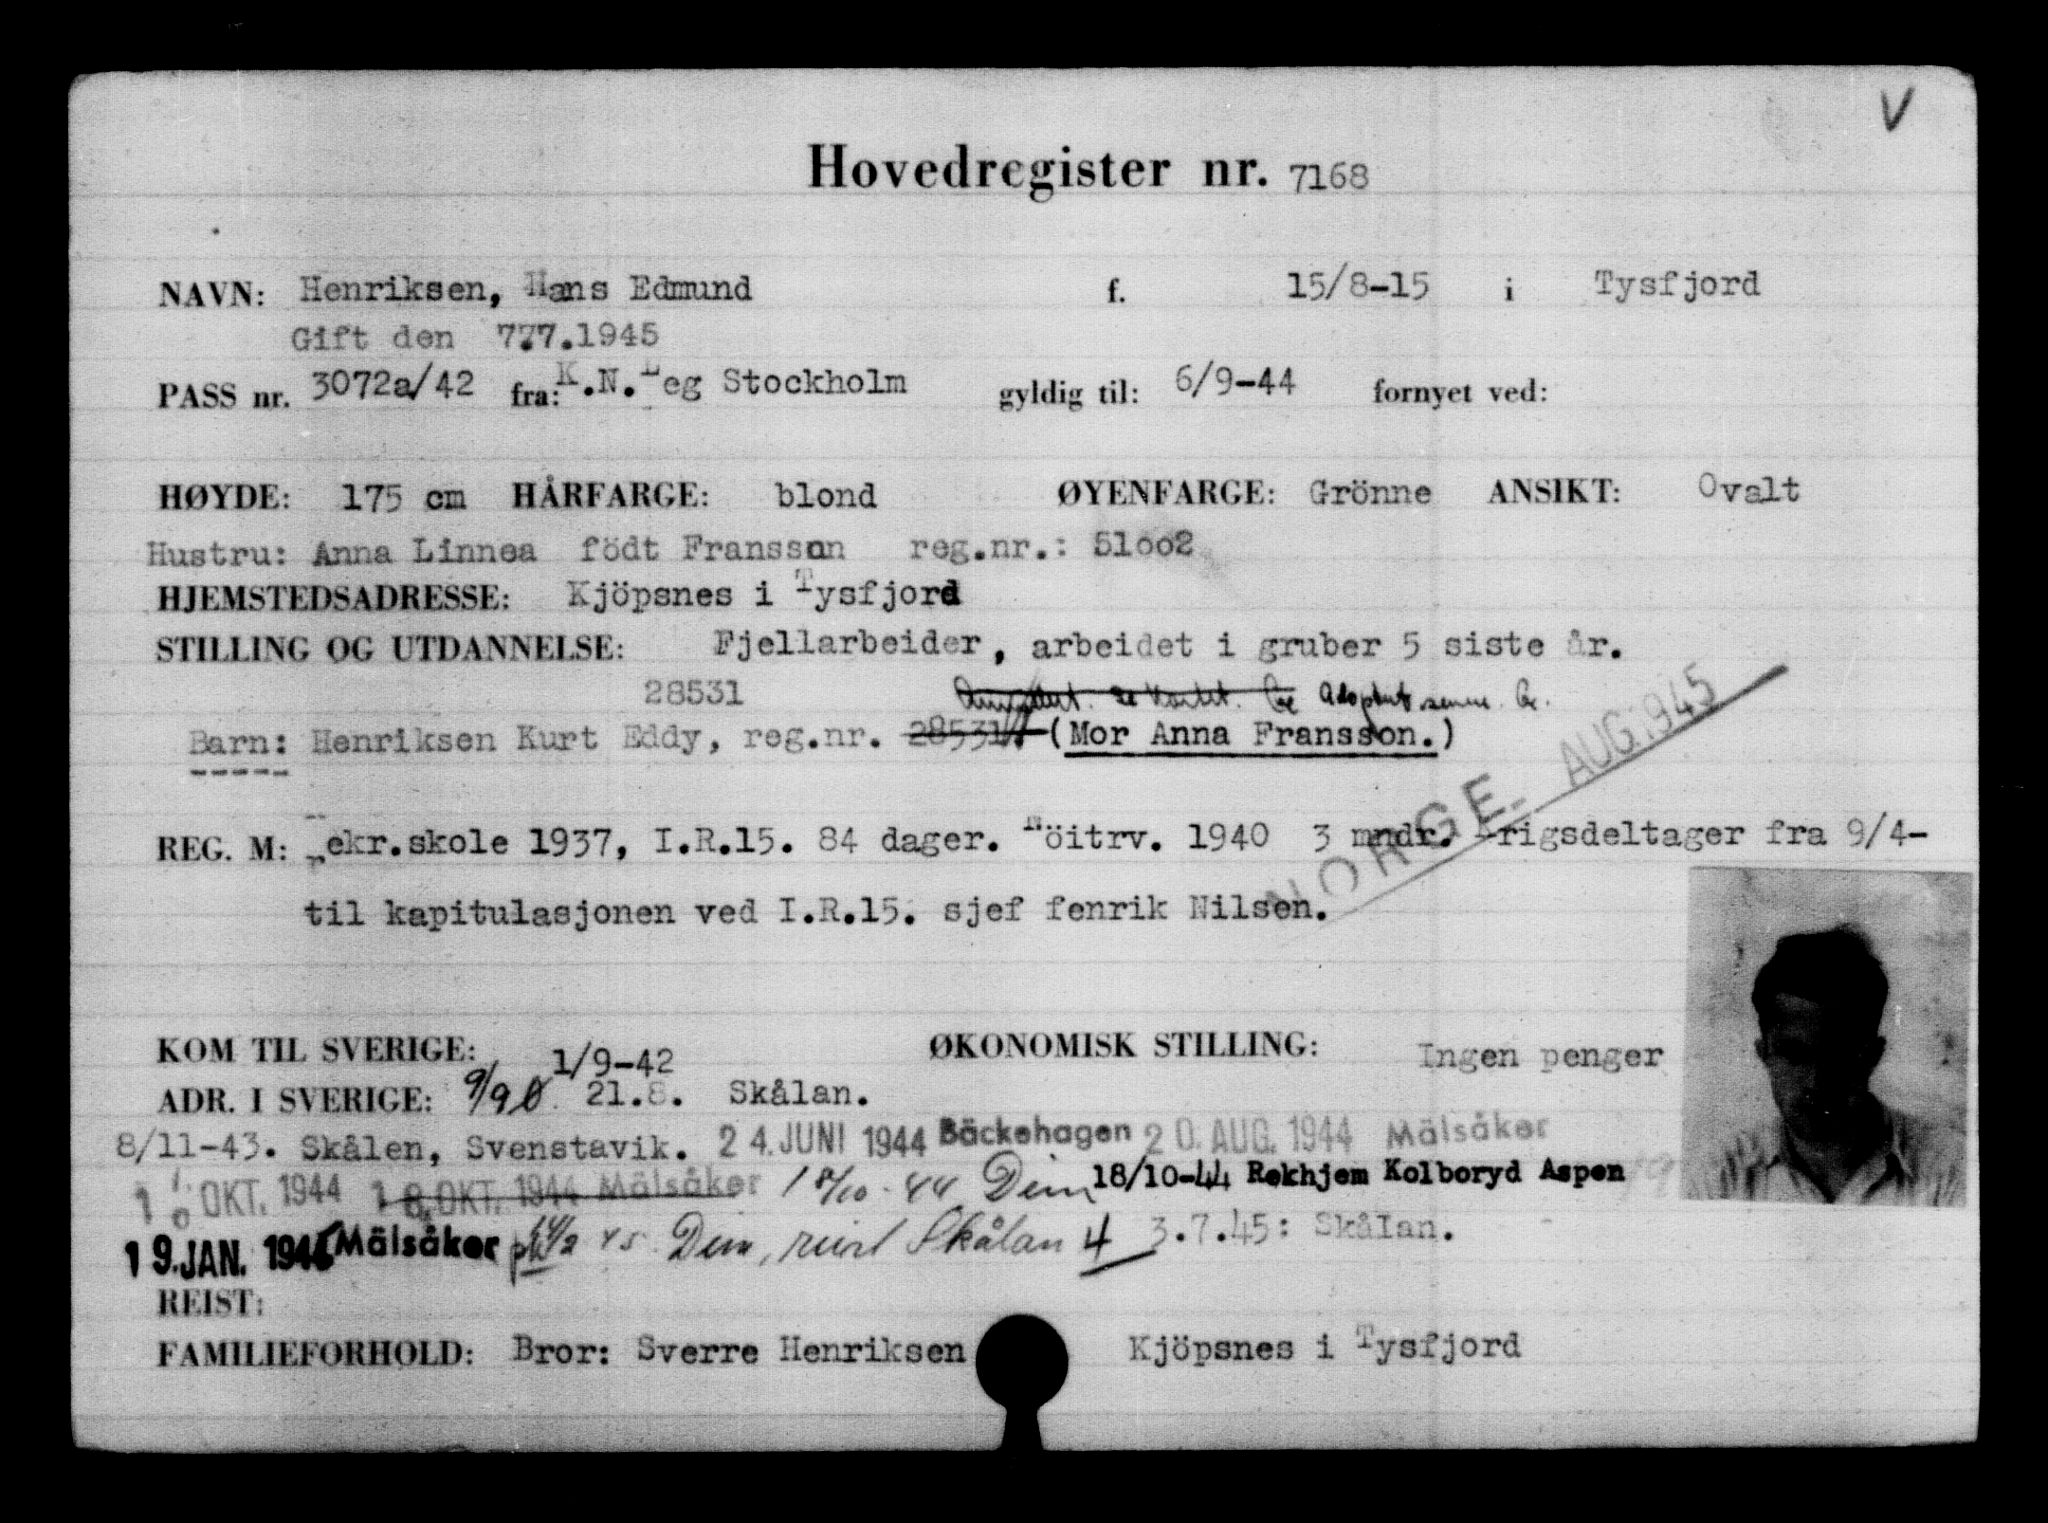 V
Hovedregister nr. 7168
NAVN: Henriksen, Hans Edmund f. 15/8-15 i Tysfjord
Gift den 7.7.1945
PASS nr. 3072a/42 fra: K.N.Leg Stockholm gyldig til: 6/9-44 fornyet ved:
HØYDE: 175 cm HÅRFARGE: blond ØYENFARGE: Grönne ANSIKT: Ovalt
Hustru: Anna Linnea födt Fransson reg.nr.: 51002
HJEMSTEDSADRESSE: Kjöpsnes i Tysfjord
STILLING OG UTDANNELSE: Fjellarbeider, arbeidet i gruber 5 siste år.
28531
Barn: Henriksen Kurt Eddy, reg.nr. 28531 (Mor Anna Fransson.)
NORGE AUG. 1945
REG. M: ekr.skole 1937, I.R.15. 84 dager. Nöitrv. 1940 3 mndr. rigsdeltager fra 9/4-
til kapitulasjonen ved I.R.15. sjef fenrik Nilsen.
KOM TIL SVERIGE: 1/9-42 ØKONOMISK STILLING: Ingen penger
ADR. I SVERIGE: 21.8. Skålan.
8/11-43. Skålen, Svenstavik. 24. JUNI 1944 Bäckehagen 20. AUG. 1944 Mälsåker
OKT. 1944 18. OKT. 1944 Mälsåker 18/10-44 Dim 18/10-44 Rekhjem Kolboryd Aspen
19. JAN. 1945 Mälsåker 45 Dim, reist Skålan 4 3.7.45: Skålan.
REIST:
FAMILIEFORHOLD: Bror: Sverre Henriksen Kjöpsnes i Tysfjord